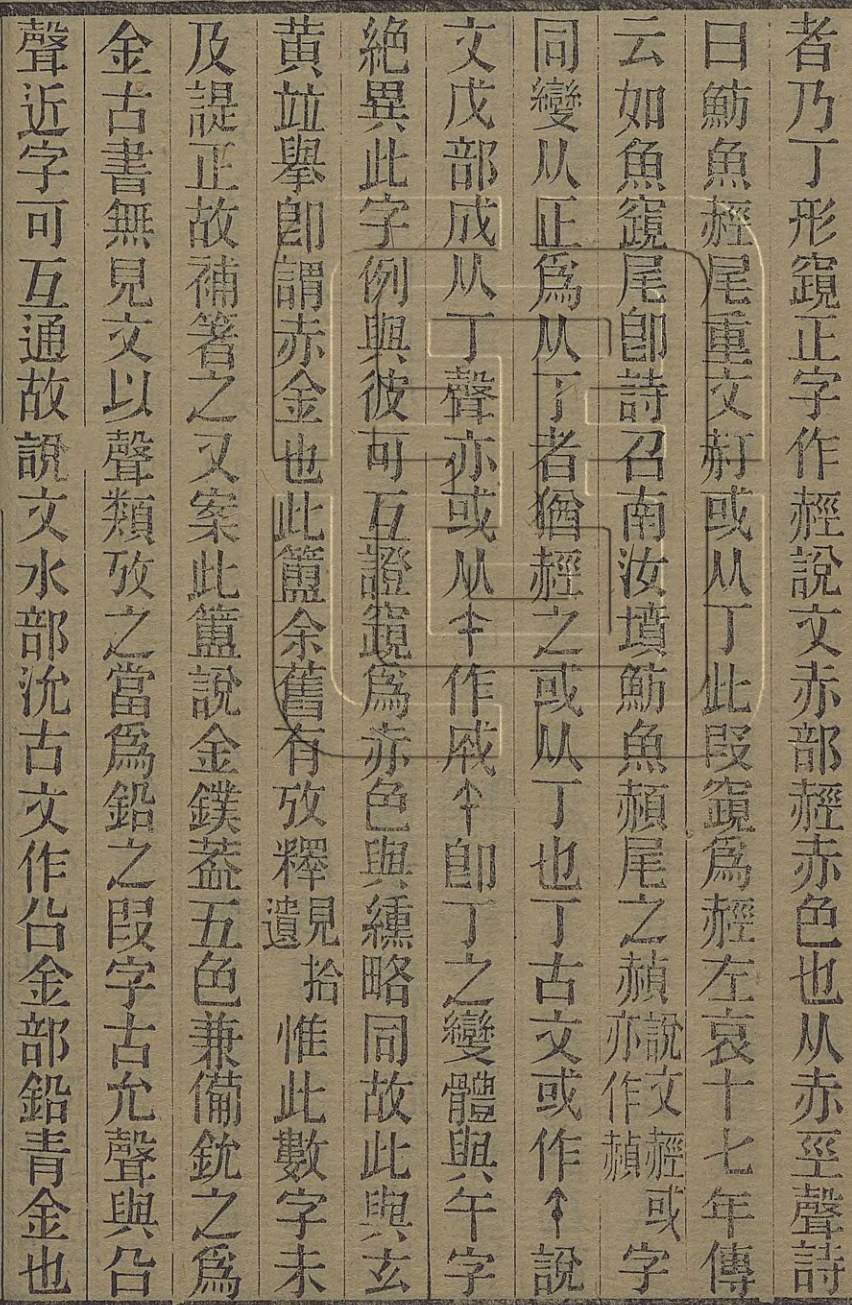 者乃丁形窺正字作䞓說文赤部䞓赤色也从赤巠聲詩
曰魴魚䞓尾重文䞓或从丁此叚窺爲䞓左哀十七年傳
云如魚窺尾卽詩召南汝墳魴魚赬尾之赬說文䞓或字亦作赬
同變从正爲从丁者猶䞓之或从丁也丁古文或作說
文戊部成从丁聲亦或从作戚卽丁之變體與午字
絕異此字例與彼可互證窺爲赤色與纁略同故此與玄
黃竝舉卽謂赤金也此簠余舊有攷釋見拾遺惟此數字未
及諟正故補箸之又案此簠說金鏷葢五色兼備鈗之爲
金古書無見文以聲類攷之當爲鉛之叚字古允聲與㕣
聲近字可互通故說文水部沇古文作㕣金部鉛青金也